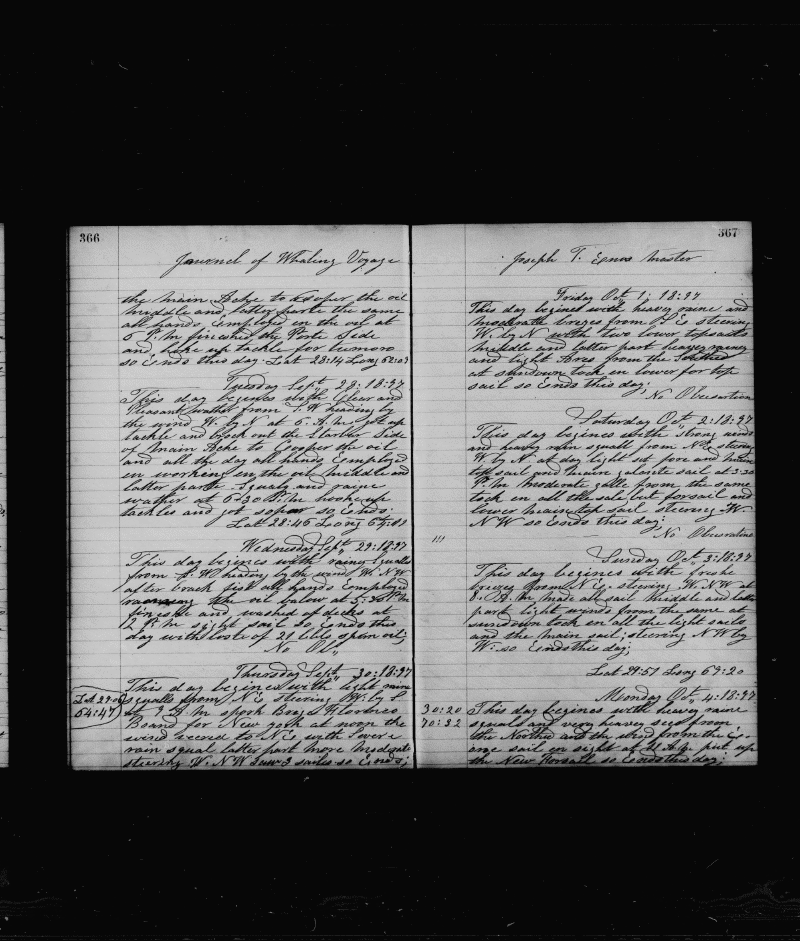 366
Journel of Whaling Voyage
the main Ache to Cooper the oil
middle and latter parte the same
all hands Employed in the oil at
6 P.M finished the Porte Side
and up tackle for
so Ends this day Lat 28:14 Long 62:03
Tuesday Sept 28: 18:97
This day begines with Clear and
Pleasant wather from S.W heading by
the wind W. by N at 6 A.M got up
tackle and brock out the Starbor Side
of main Ache to Cooper the oil
and all the day all hands Employed
in worken in the oil middle and
latter parte Squaly and raine
wather at 6:30 P.M hooke up
tackles and got so Ends.
Lat 28:46 Long 64:02
Wednesday Sept 29: 18:97
This day begines with rainey Squalls
from S.W heading by the wind W.N.W
after breck fist all hands Employed
the oil below at 5:30 P.M
finished and washed of decks at
12 P.M sight sail so Ends this
day with lose of 21 bbls sperm oil;
No Obs
Thursday Sept 30: 18:97
This day begines with light raine
Lat 29:00 squalls from N.E steering W. by S
64:47 at P.M spook Barge Florence
Board for New York at noon the
wind to N.E with Severe
rain squal latter part more modrate
steering W.N.W sailes so Ends;
367
Joseph T. Enos Master
Friday Oct 1; 18:97
This day begines with heavey raine and
moderate brezes from S.E steering
W. by N with two lower topsailes
middle and latter part heavey rainey
and light Aires from the Southerd
at sundown tock in lower for top
sail so Ends this day;
No Obsertion
Saturday Oct 2: 18:97
This day begines with strong winds
and heavey rain squall from N.E steering
W by N at day light set fore and main
top sail and main galante sail at 3:30
P.M moderate galle from the same
tock in all the sale but forsail and
lower maine top sail steering W.
N.W so Ends this day;
No Obseration
Sunday Oct 3: 18:97
This day begines with freshe
brezes from N.E. steering W.N.W at
A.M made all sail middle and latter
part light winds from the same at
sundown tock in all the light sails
and the main sail; steering N.W by
W. so Ends this day;
Lat 29:51 Long 69:20
Monday Oct 4: 18:97
30:20 This day begines with heavey raine
70:32 squals and very heavey sees from
the Northerd and the wind from the E.
one sail en sight at 11 A.M put up
the New forsail so Ends this day;